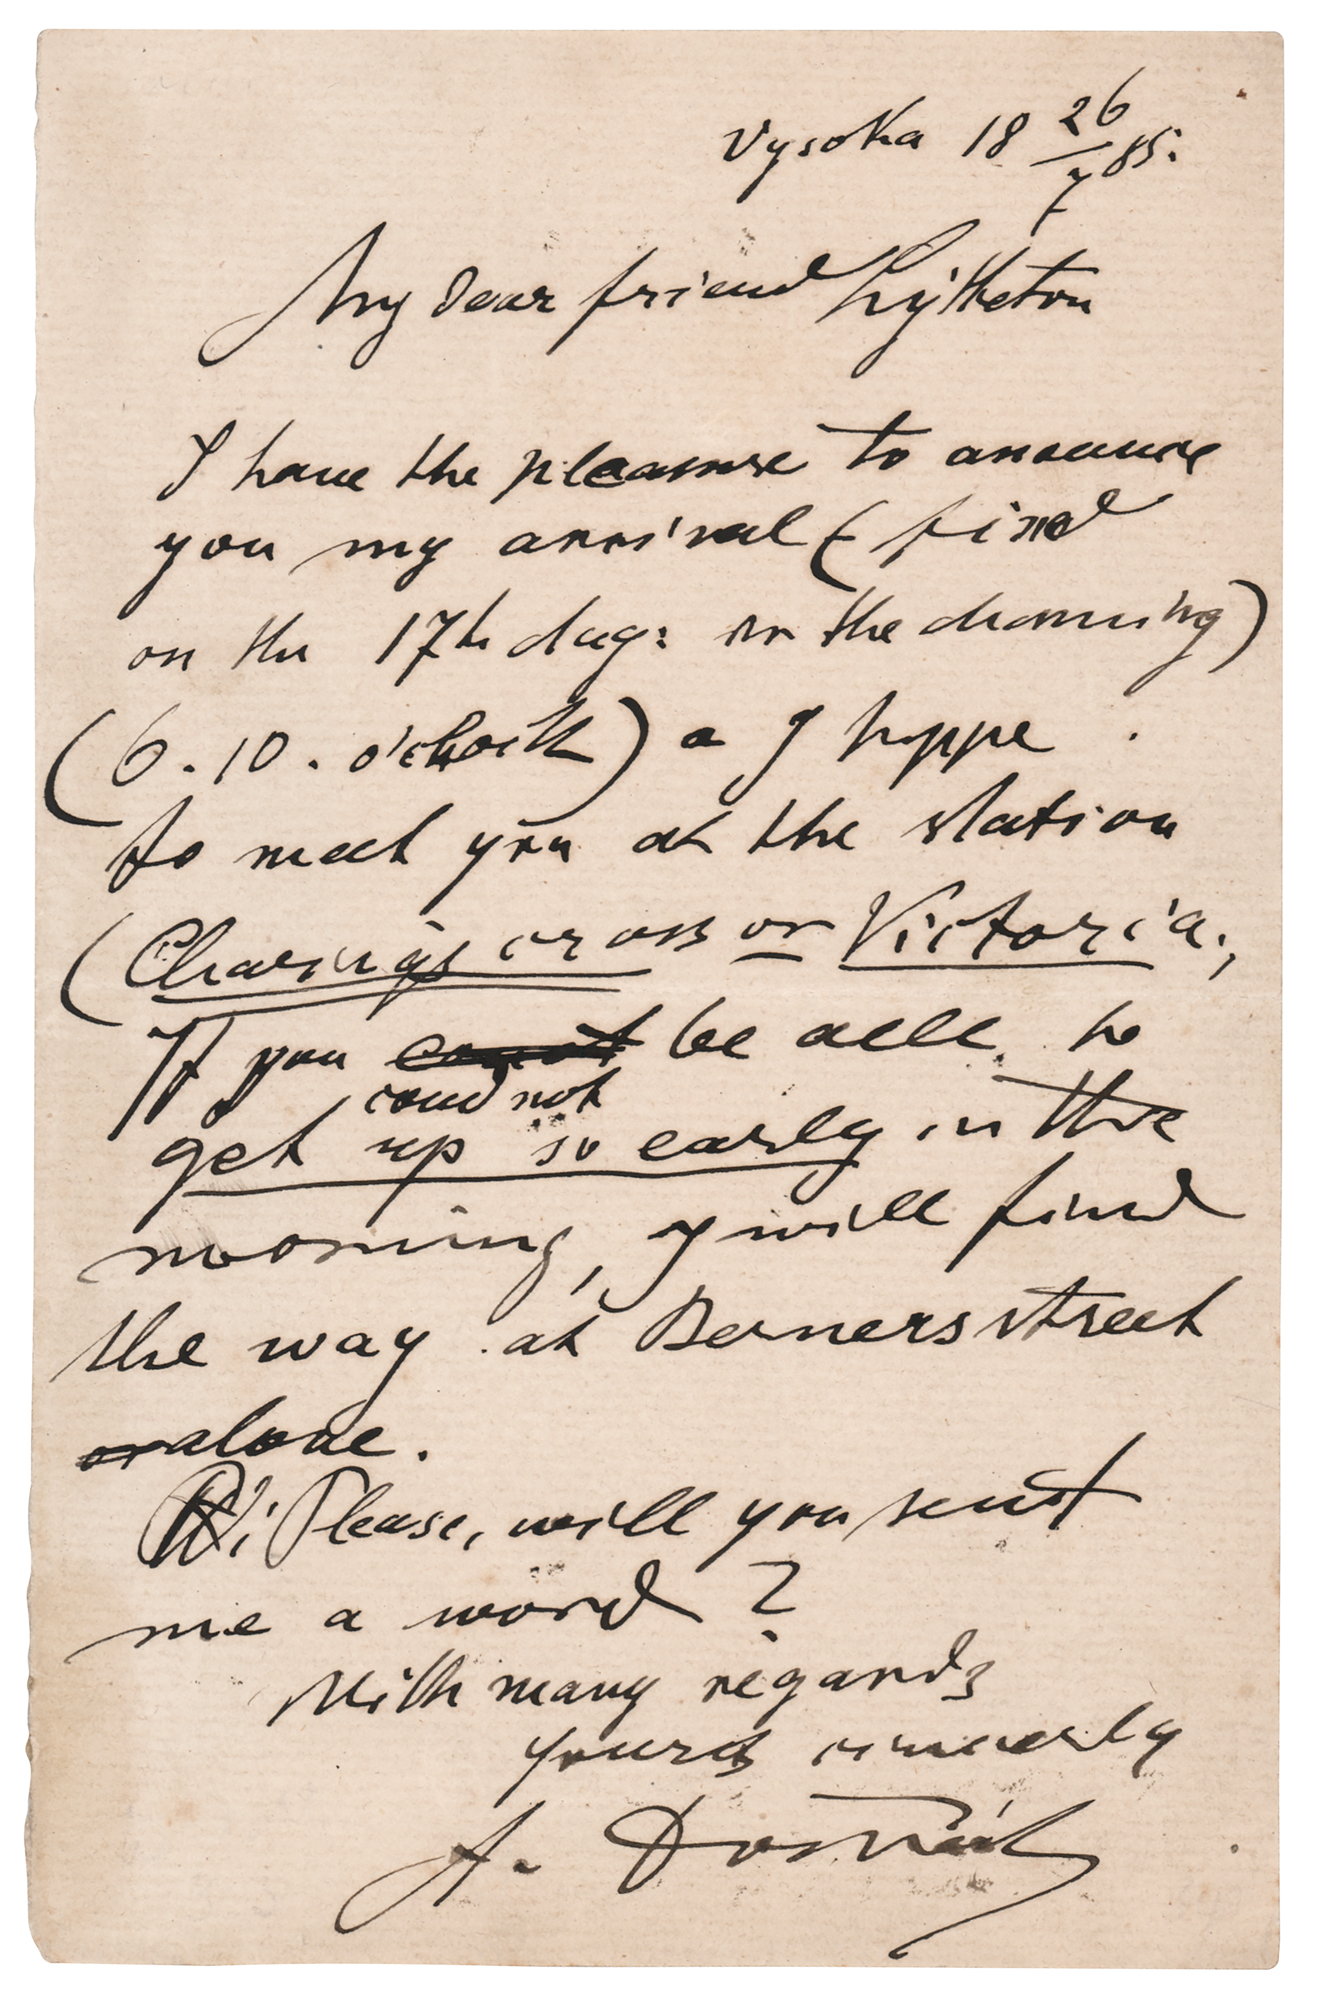 Vysoka 18 26/7 85.
My dear friend Lyttleton
I have the pleasure to announce
you my arrival ( find
on the 17th Aug: in the morning)
(6.10. o'clock) a I hoppe
to meet you at the station
(Charings cross or Victoria.,
If you cannot be able to
coud not
get up so early in the
morning, I will find
the way at Berners street
or alone.
Please, will you sent
me a word ?
With many regards
yours sincerely
A. Dvořák